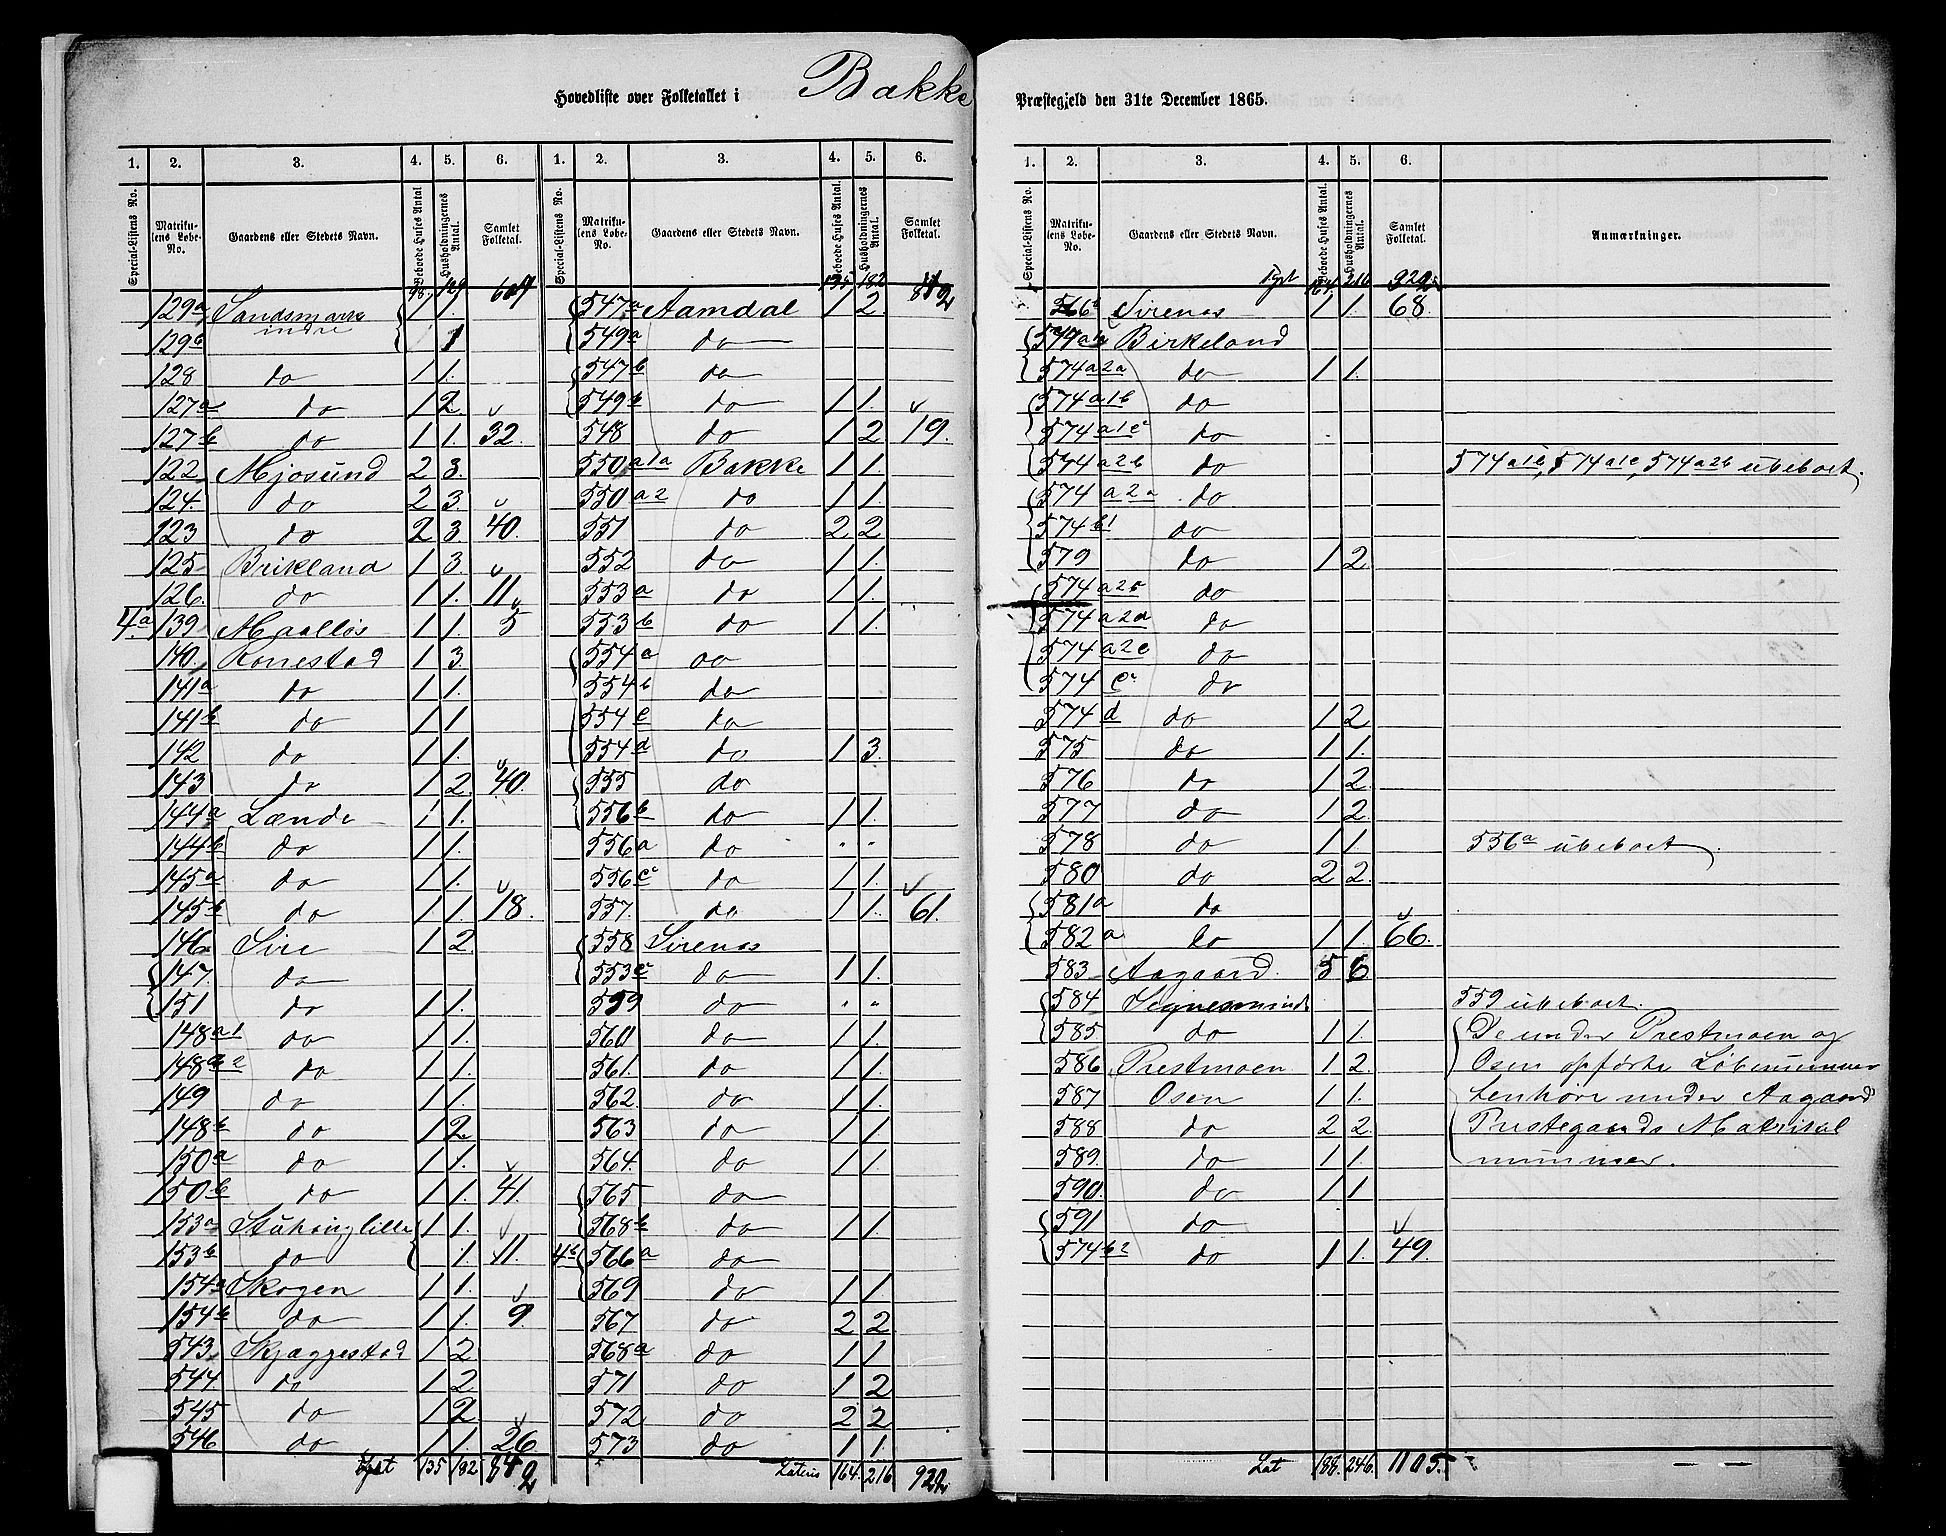 Hovedliste over Folketallet i Bakke Præstegjeld den 31te December 1865.
1. 2. 3. 4. 5. 6. 1. 2. 3. 4. 5. 6.
Special-Listens No. Matrikulens Løbe-No. Gaardens eller Stedets Navn. Beboede Huses Antal Husholdningernes Antal. Samlet Folketal. Special-Listens No. Matrikulens Løbe-No. Gaardens eller Stedets Navn. Beboede Huses Antal. Husholdningernes Antal. Samlet Folketal.
98. 129 609 135 182 842
129a Sandsmark indre 1 1. 547a Aamdal 1 2.
129b 1 549a do
128 do 1 1. 547b do
127a do 1 2. 549b do 1 1.
127b do 1 1. 32. 548 do 1 2 19.
122 Mjosund 2 3. 550 a1a Bakke 1 1.
124. do 2 3. 550 a2 do 1 1.
123 do 2 3 40. 551 do 2 2
125 Brikland 1 3. 552 do 1 1.
126. do 1 1. 11. 553a do 1 1.
4.a 139 Maalløs 1 1. 5 553b do 1 1.
140. Ronestad 1 3. 554a do
141a do 1 1. 554b do
141b do 1 1. 554c do
142 do 1 1. 554d do 1 3.
143 do 1 2. 40. 555 do
144a Lænde 1 1. 556b do 1 1.
144b do 1 1. 556a do " "
145a do 1 1. 556c do 1 1.
145b do 1 1. 18. 557. do 1 1. 61.
146a Sire 1 2. 558 Sirenes
147. do 553c do 1 1.
151 do 1 1. 559 do " "
148a1 do 1 1. 560 do 1 1.
148a2 do 1 1. 561. do 1 1.
149 do 1 1. 562. do 1 1.
148b do 1 2. 563 do 1 1.
150a do 1 1. 564. do 1 1.
150b do 1 1. 41. 565 do
153a Stuhaug lille 1 1. 568b do 1 1.
153b do 1. 11. 4b 566a do
154a Skogen 1 1. 569 do 1 1
154b do 1 1. 9. 567 do 2 2
543. Skjæggestad 1 2 568a do 1 1
544. do 1 2 571 do 1 2
545 do 1 2 572. do 2 2
546 do 1 1. 26. 573 do 1 1.
135 182 842 Lateris 164. 216 922
1. 2. 3. 4. 5. 6.
Special-Listens No. Matrikulens Løbe-No. Gaardens eller Stedets Navn. Beboede Huses Antal. Husholdningernes Antal. Samlet Folketal. Anmærkninger.
164. 216 922
566b Sirenes 1 1. 68.
574a1a Birkeland
574a2a do 1 1.
574a1b do
574a1c do
574a2b do 574a1b, 574a1c, 574a2b ubeboet.
574 a2a do
574b1 do
579 do 1 2
574a2c do
574a2d do
574a2e do
574 c do
574 d do 1 2
575 do 1 1.
576 do 1 2
577 do 1 2
578 do 1 1. 556a ubeboet.
580 do 2 2.
581a do
582a do 1 1. 66.
583 Aagaard. 5 6
584 Signesminde 559 ubeboet.
585. do 1 1. De under Prestmoen og
586 Prestmoen 1 2. Osen opførte Løbenummer
587 Osen 1 1. henhøre under Aagaard
588 do 2 2. Prestegaards Matrikul
589. do 1 1. nummer.
590. do 1 1
591 do
574b2 do 1 1. 49.
Lat 188. 246. 1105.